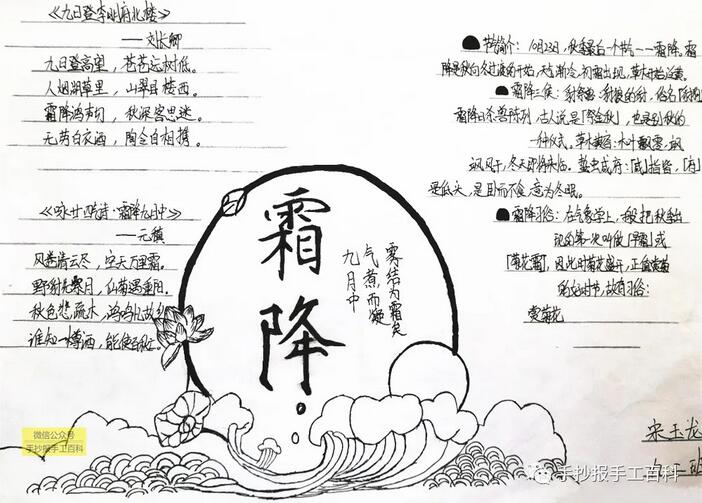 《九日登李明府北楼》
——刘长卿
九日登高望，苍苍远树低。
人烟湖草里，山翠县楼西。
霜降鸿声切，秋深客思迷。
无劳白衣酒，陶令自相携。
《咏廿四气诗·霜降九月中》
——元稹
风卷清云尽，空天万里霜。
野豺先祭月，仙菊遇重阳。
秋色悲疏木，鸿鸣忆故乡。
谁知一樽酒，能使百秋亡。
霜降
九月中
气肃而凝
露结为霜矣
节气简介：10月23日，秋季最后一个节气——霜降。霜
降是秋向冬过渡的开始，天气渐冷，初霜出现，草木开始
霜降三候：豺祭兽：豺狼的豺，俗名「豺狗」
霜降日杀兽陈列，古人说是「祭金秋」，也是别秋的
一种仪式。草木黄落：木叶飘零，
风干，冬天即将来临。蛰虫咸俯：「咸」指皆，「俯」
是低头，是卧而不食，意为冬眠。
霜降习俗：在气象学上，一般把秋季出
现的第一次叫做「早霜」或
「菊花霜」，因此时菊花盛开，正值赏菊
的好时节，故有习俗：
赏菊花
宋玉龙
班
微信公众号
手抄报手工百科
手抄报手工百科